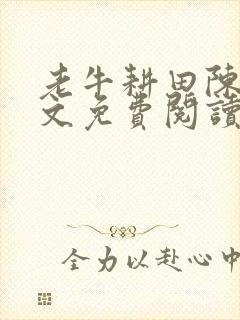 老牛耕田陳
文免費閱讀
全力以赴心中